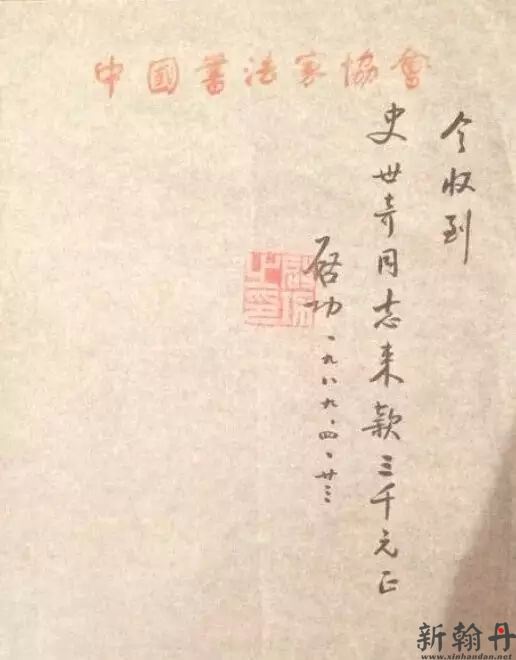 中國書法家協會
今收到
史世奇同志来款三千元正
启功 一九八九、四、廿三
新翰丹
www.xinhandan.net